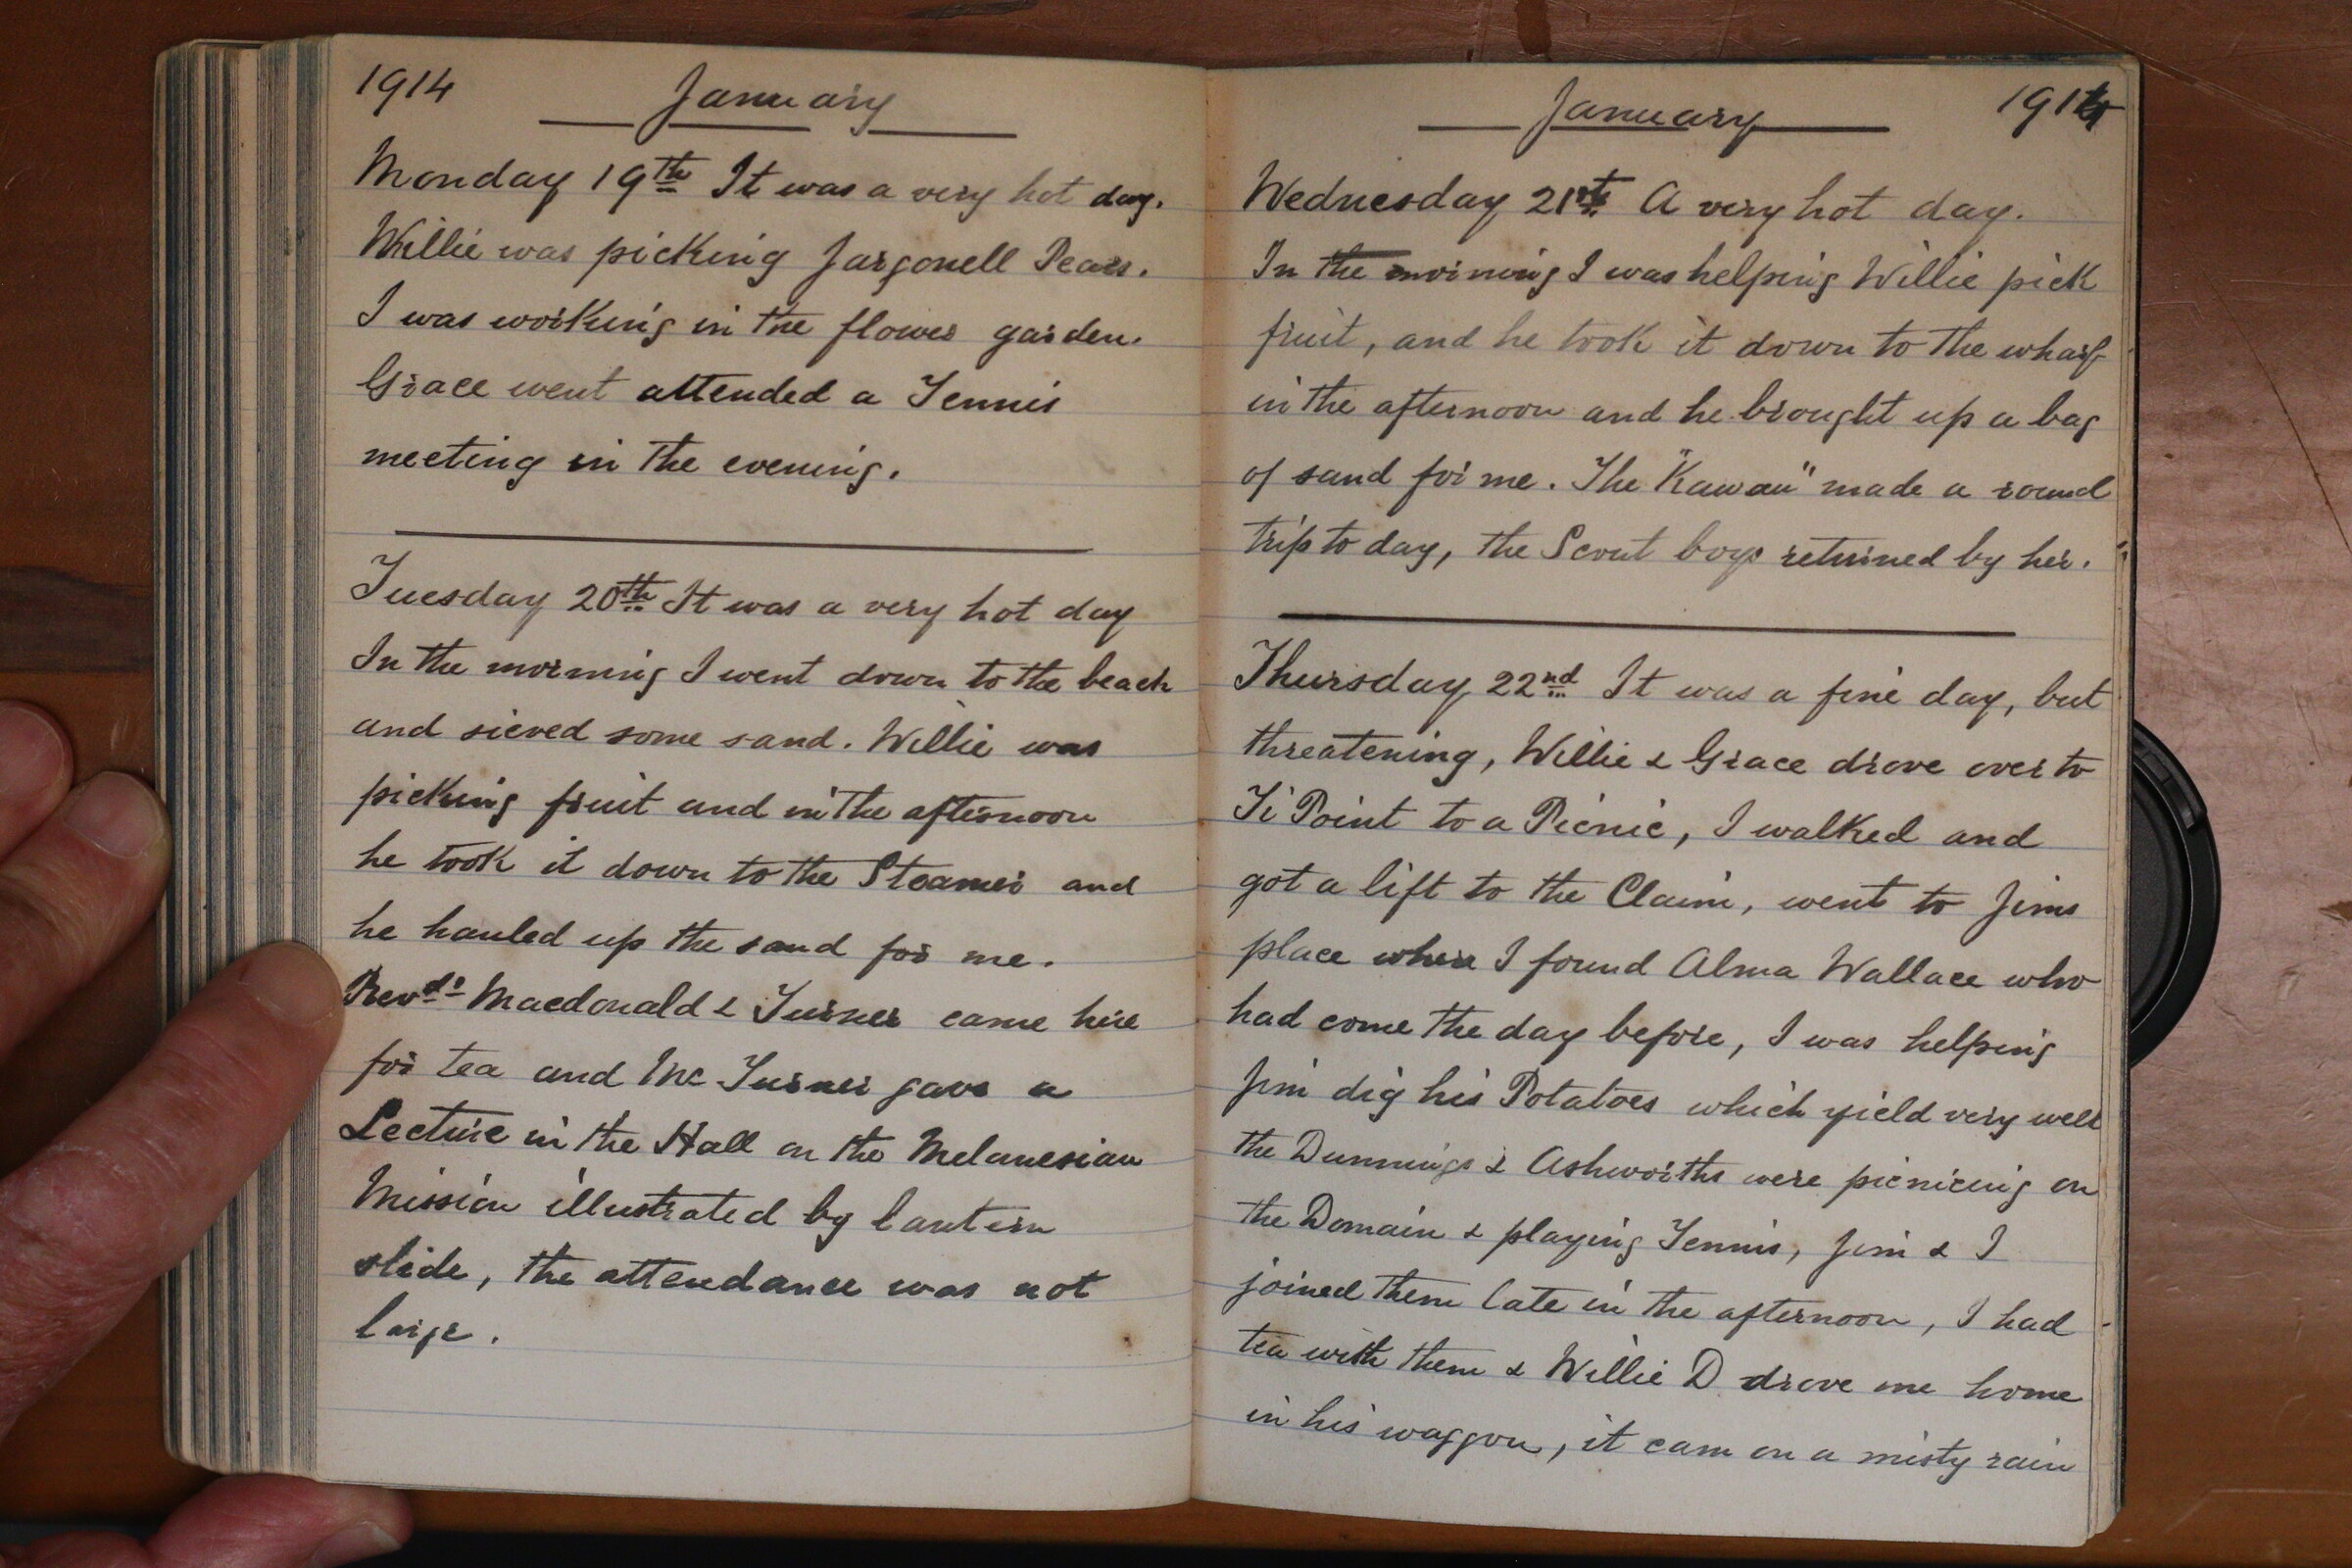 1914 January
Monday 19th It was a very hot day.
Willie was picking Jargonell Pears.
I was working in the flower garden.
Grace went attended a Tennis
meeting in the evening.
Tuesday 20th It was a very hot day
In the morning I went down to the beach
and sieved some sand. Willie was
picking fruit and in the afternoon
he took it down to the Steamer and
he hauled up the sand for me.
Revds Macdonald & Turner came here
for tea and Mr Turner gave a
Lecture in the Hall on the Melanesian
Mission illustrated by lantern
slide, the attendance was not
large.
January 1914
Wednesday 21st A very hot day.
In the morning I was helping Willie pick
fruit, and he took it down to the wharf
in the afternoon and he brought up a bag
of sand for me. The "Kawau" made a round
trip to day, the Scout boys returned by her.
Thursday 22nd It was a fine day, but
threatening, Willie & Grace drove over to
Ti Point to a Picnic, I walked and
got a lift to the Claim, went to Jims
place where I found Alma Wallace who
had come the day before, I was helping
Jim dig his Potatoes which yield very well
the Dunnings & Ashworths were picnicing on
the Domain & playing Tennis, Jim & I
joined them late in the afternoon, I had
tea with them & Willie D drove me home
in his waggon, it cam on a misty rain